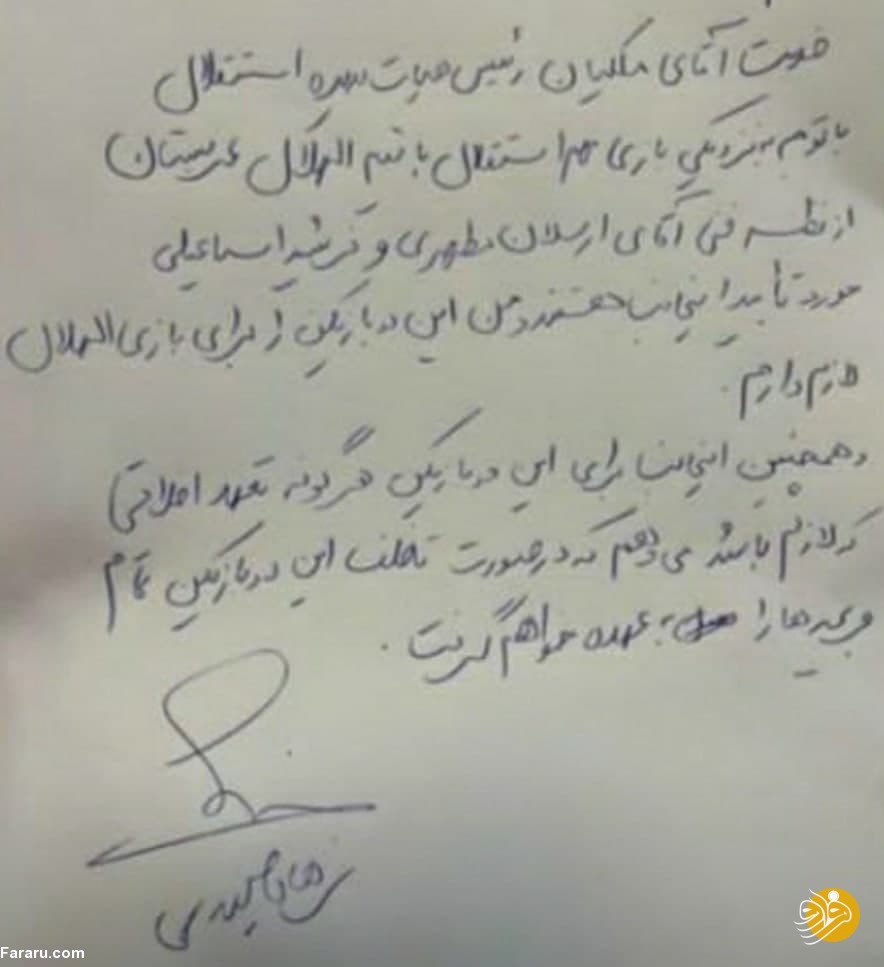 خدمت آقای ملکیان رئیس هیات مدیره استقلال
با توجه به نزدیکی بازی مهم استقلال با تیم الهلال عربستان
از نظر فنی آقای ارسلان مطهری و فرشید اسماعیلی
مورد تأیید اینجانب هستند و من این دو بازیکن را برای بازی الهلال
لازم دارم.
و همچنین اینجانب برای این دو بازیکن هر گونه تعهد اخلاقی
که لازم باشد می دهم که در صورت تخلف این دو بازیکن تمام
جریمه ها را به عهده خواهم گرفت.
فرهاد مجیدی
فرارو
Fararu.com